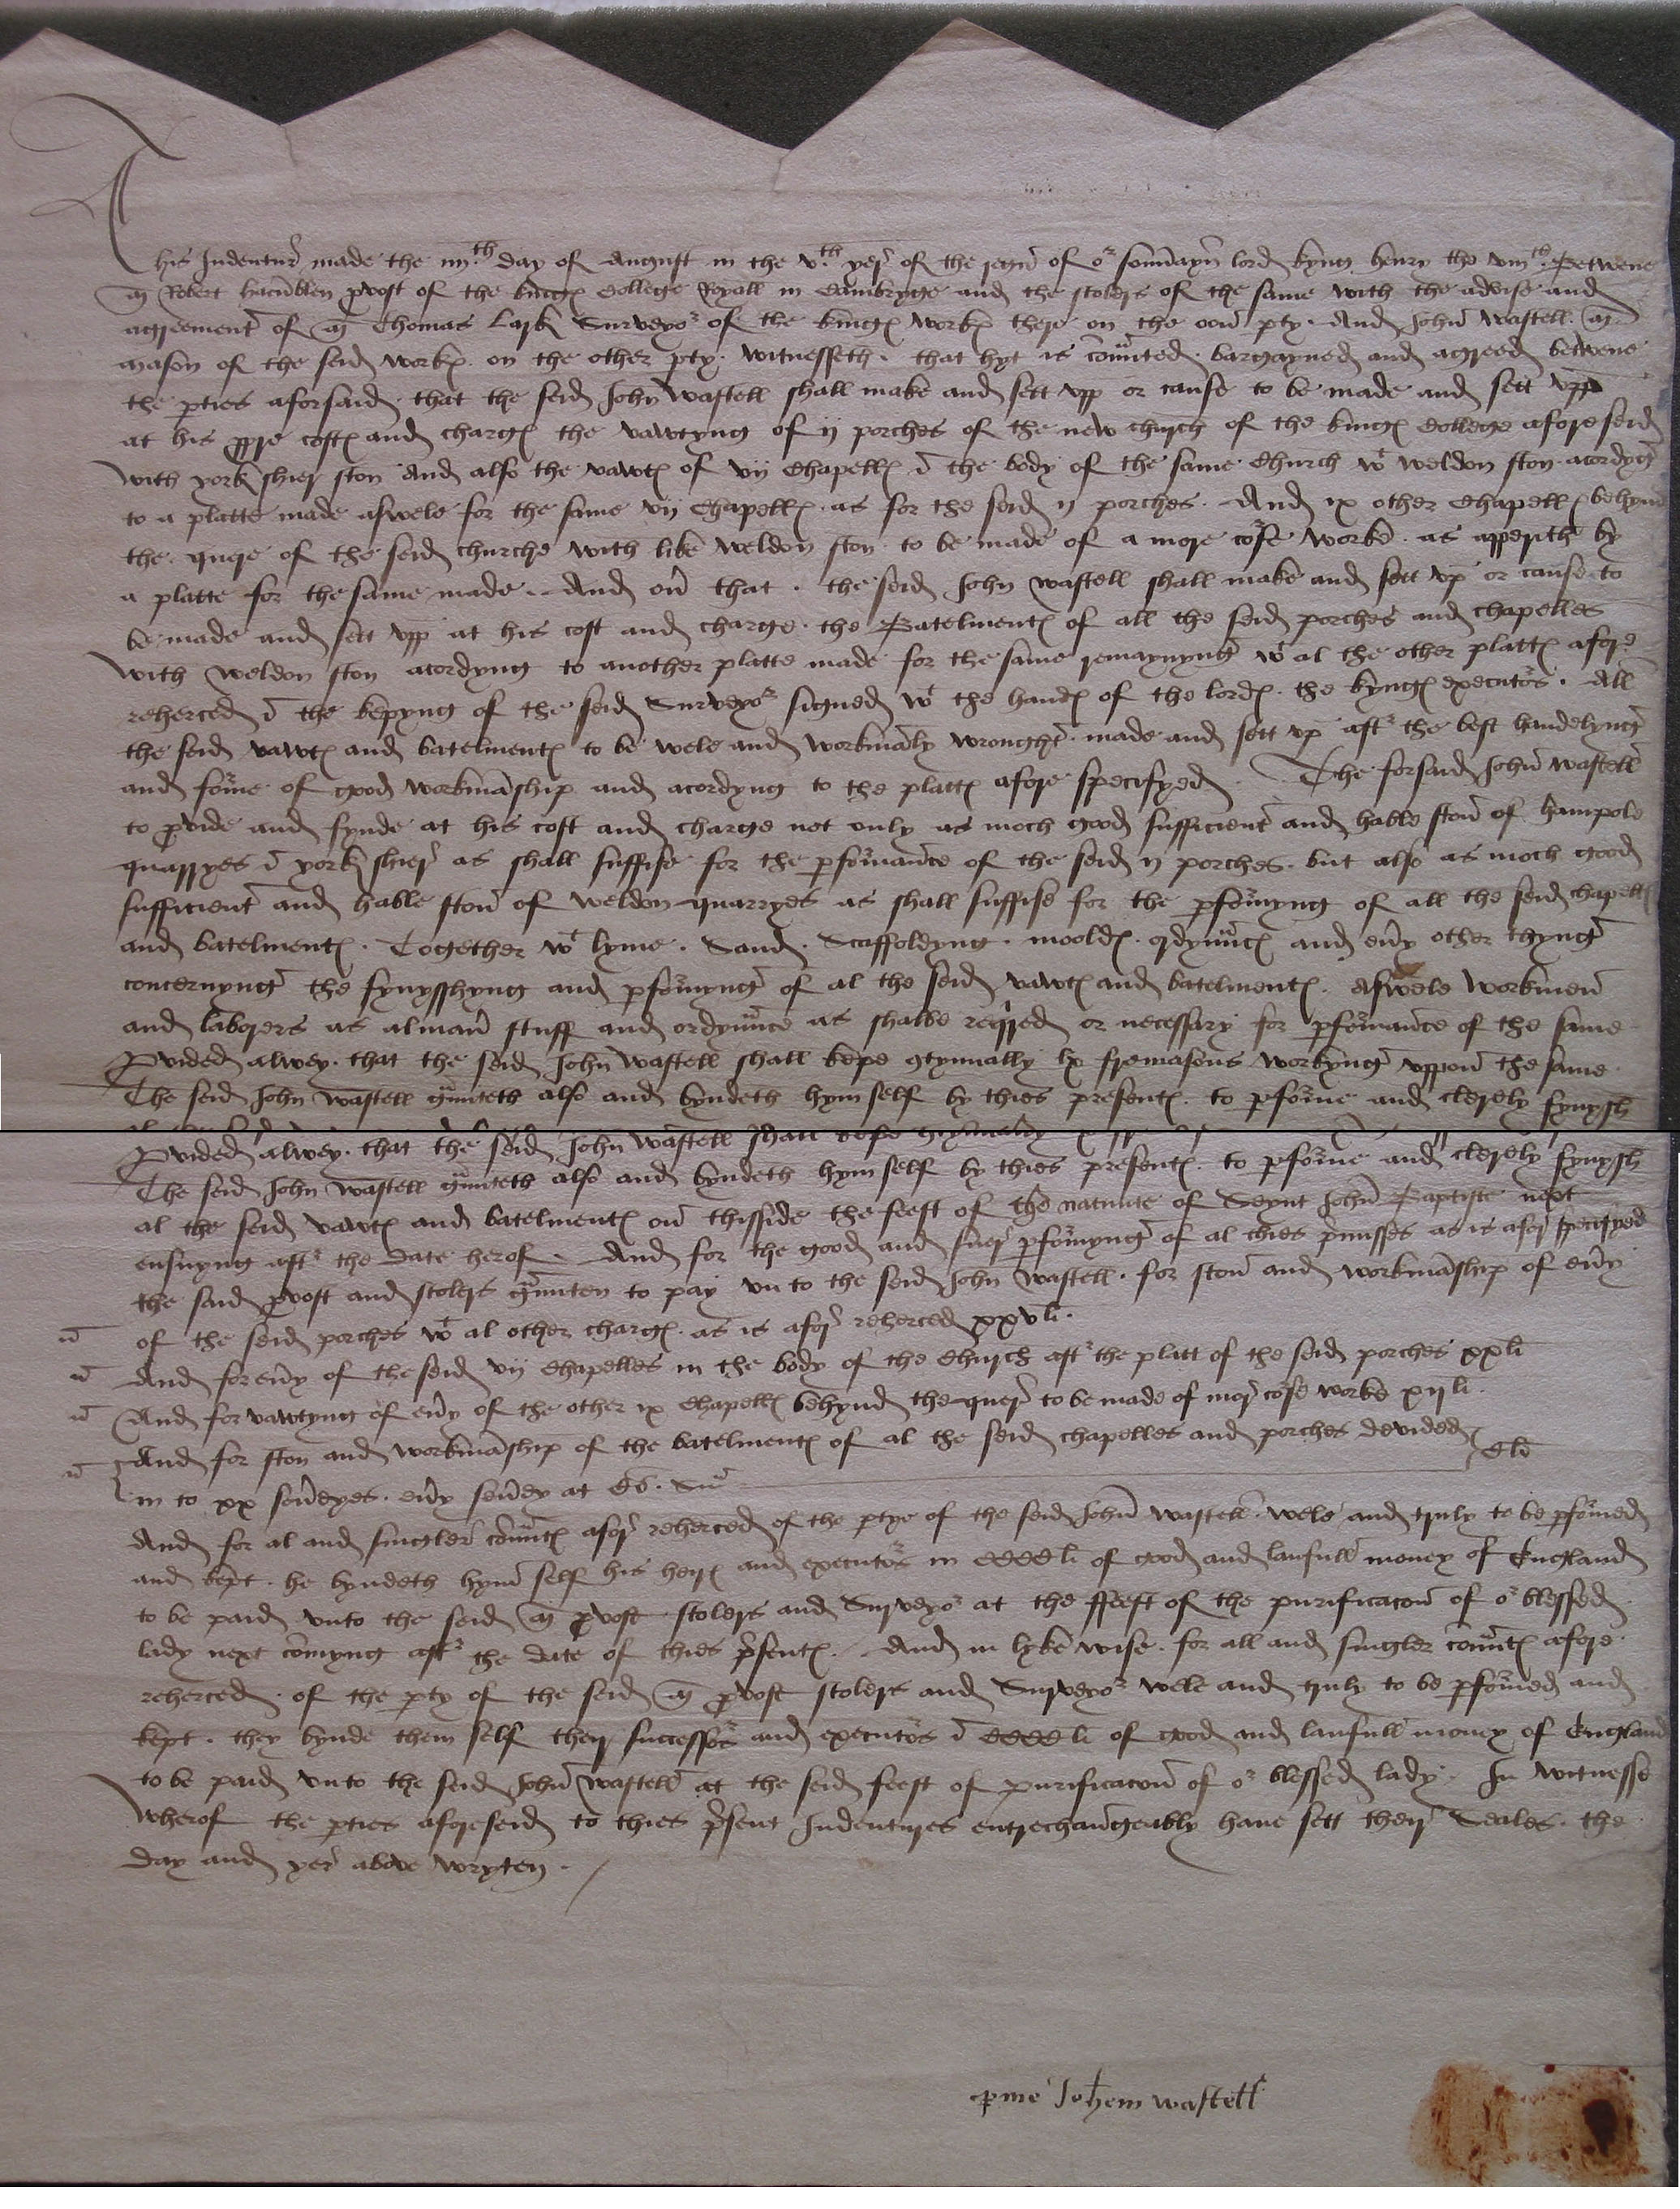 This Indentur made the iiijth day of August in the vth yer of the reign of or souerayn lord kyng henry the viijth Betwene
mr Robert hacumblen pvost of the kingꝭ College Royall in Cambryge and the scolers of the same with the advise and
agreement of mr Thomas Lark Surveyor of the kingꝭ workꝭ there on the oon pty. And John Wastell mr
mason of the seid workꝭ on the other pty. witnesseth. that hyt is couunted. bargayned and agreed betwene
the pties aforsaid. that the seid John Wastell shall make and sett vpp or cause to be made and sett vpp
at his ppre costꝭ and chargꝭ the vawtyng of ij porches of the new church of the kingꝭ College aforeseid
with york shier ston And also the vawtꝭ of vij Chapellꝭ i the body of the same Church wt weldon ston acordyng
to a platte made aswele for the same vij Chapellꝭ. as for the seid ij porches. And ix other Chapellꝭ behynd
the quere of the seid churche with like weldon ston to be made of a more corse worke. as apperith by
a platte for the same made. And ou that. the seid John wastell shall make and sett vp or cause to
be made and sett vpp at his cost and charge. the Batelmentꝭ of all the seid porches and chapelles
with weldon ston acordyng to another platte made for the same remaynyng wt al the other plattꝭ afore
reherced i the kepyng of the seid Surveyor signed wt the handꝭ of the lordꝭ. the kyngꝭ executors. All
the seid vawtꝭ and batelmentꝭ to be wele and workmaly wrought. made and sett vp aftr the best handelyng
and forme of good workmaship and acordyng to the plattꝭ afore specifyed The forsaid John wastell
to pvide and fynde at his cost and charge not only as moch good sufficient and hable ston of hampole
quarryes i york shier as shall suffise for the pformaunce of the seid ij porches. but also as moch good
sufficient and hable ston of weldon quarryes as shall suffise for the pformyng of all the seid chapellꝭ
and batelmentꝭ. Together wt lyme. Sand. Scaffoldyng. mooldꝭ. ordynuncꝭ and euy other thyng
concernyng the fynysshyng and pformyng of al the seid vawtꝭ and batelmentꝭ. Aswele workmen
and laborers as alman stuff and ordynunce as shalbe reqired or necessary for pformaunce of the same
Pvided alwey. that the seid John wastell shall kepe ꝯtynually lx fremasons workyng vppon the same.
The seid John wastell gunteth also and byndeth hymself by thies presentꝭ. to pforme and clerely fynysh
Pvided alwey. that the seid John wastell shall kepe ꝯtynually
The seid John wastell gunteth also and byndeth hym self by thies presentꝭ. to pforme and clerely fynysh
al the seid vawtꝭ and batelmentꝭ on thisside the feest of the natiuite of Seynt John Baptiste next
ensuyng aftr the date herof. And for the good and suer pformyng of al thies pmisses as is afor specifyed
the said pvost and scolers gunten to pay vn to the seid John wastell. for ston and workmaship of euy
of the seid porches wt al other chargꝭ. as is afor reherced xxvli.
And for euy of the seid vij Chapelles in the body of the Church aftr the platt of the seid porches xxli
And for vawtyng of euy of the other ix Chapellꝭ behynd the quer to be made of mor corse worke xijli.
And for ston and workmaship of the batelmentꝭ of al the seid chapelles and porches devided
in to xx seueryes. euy seuery at Cs. Sm Cli
And for al and singler couuntꝭ afor reherced of the ptye of the seid John wastell. wele and truly to be pformed
and kept. he byndeth hym self his heirꝭ and executors in CCCC li of good and laufull money of England
to be paid vnto the seid mr pvost scolers and Surveyor at the ffeest of the purificacon of or blessed
lady next comyng aftr the date of thies psentꝭ. And in lyke wise. for all and singler couuntꝭ afore
reherced. of the pty of the seid mr pvost scolers and Surveyor wele and truly to be pformed and
kept. they bynde them self their successors and executors i CCCC li of good and laufull money of England
to be paid vnto the seid John wastell at the seid feest of purificacon of or blessed lady. In witnesse
wherof the pties aforeseid to thies psent Indentures entrechaungeably haue sett their Seales. the
day and yer above wryten.
pme Johem wastell